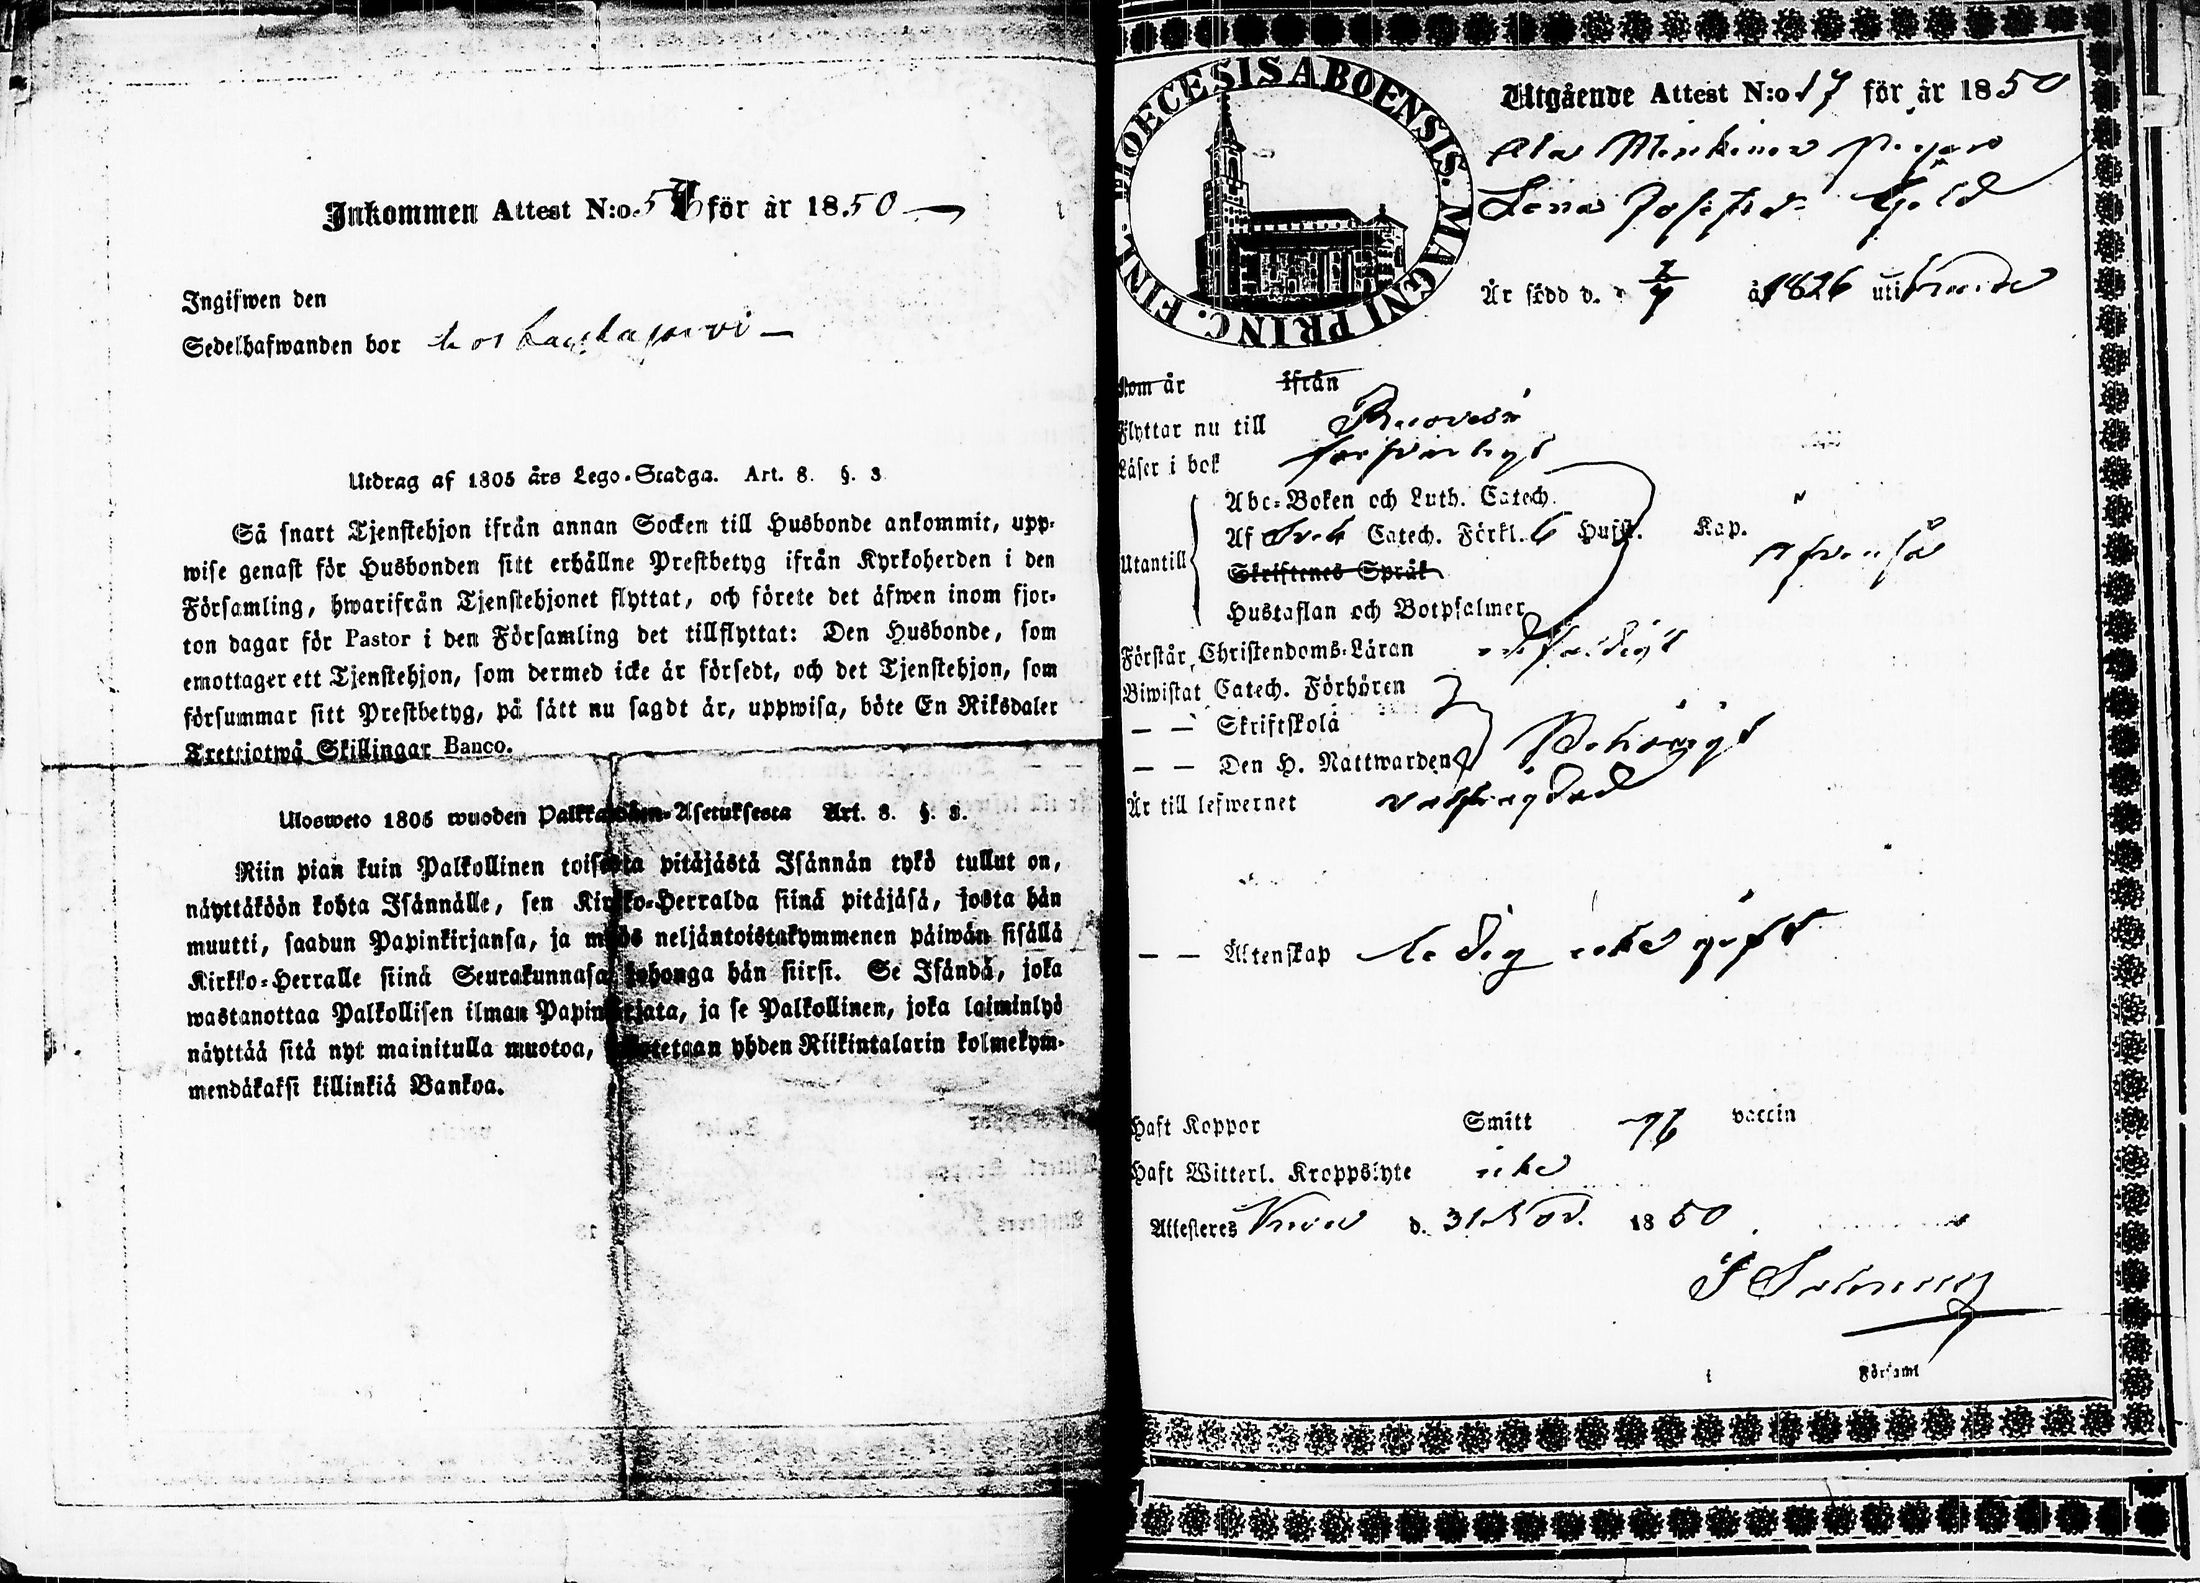 Inkommen Attest N:o 5 för år 1850
Ingifwen den
Sedelhafwanden bor
Utdrag af 1805 års Lego-Stadga. Art. 8. §. 3
Så snart Tjenstehjon ifrån annan Socken till Husbonde ankommit, upp-
wise genast för Husbonden sitt erhållne Prestbetyg ifrån Kyrkoherden i den
Församling, hwarifrån Tjenstehjonet flyttat, och förete det äfwen inom fjor-
ton dagar för Pastor i den Församling det tillflyttat: Den Husbonde, som
emottager ett Tjenstehjon, som dermed icke är försedt, och det Tjenstehjon, som
försummar sitt Prestbetyg, på sätt nu sagdt är, uppwisa, böte En Riksdaler
Trettiotwå Skillingar Banco.
Ulosweto 1805 wuoden Palkkawäen-Asetuksesta Art. 8. §. 3.
Niin pian kuin Palkollinen toisesta pitäjästä Isännän tykö tullut on,
näyttäköön kohta Isännälle, sen Kirkko-Herralda siinä pitäjäsä, josta hän
muutti, saadun Papinkirjansa, ja myös neljäntoistakymmenen päiwän sisällä
Kirkko-Herralle siinä Seurakunnasa kohonga hän siirsi. Se Isändä, joka
wastanottaa Palkollisen ilman Papinkirjata, ja se Palkollinen, joka laiminlyö
näyttää sitä nyt mainitulla muotoa, sakotetaan yhden Riikintalarin kolmekym-
mendäkaksi killinkiä Bankoa.
DIOECESIS ABOENSIS. MAGNI PRINC. FINL.
Utgående Attest N:o 17 för år 1850
Lena Josefsd:
Är född d. 1826 uti
Kom år ifrån
Flyttar nu till Ruovesi
Läser i bok försvarligt
Utantill
Abc-Boken och Luth. Catech.
Af Catech. Förkl. 6 Hufst. Kap.
Skriftenes Språk
Hustaflan och Botpsalmer
Förstår Christendoms-Läran
Biwistat Catech. Förhören
— — Skriftskola
— — Den H. Nattwarden behörigt
Är till lefwernet
— — Äktenskap ledig icke gift
Haft Koppor Smitt vaccin
Haft Witterl. Kroppslyte icke
Attesteres d. 31 Nov. 1850
i Församl